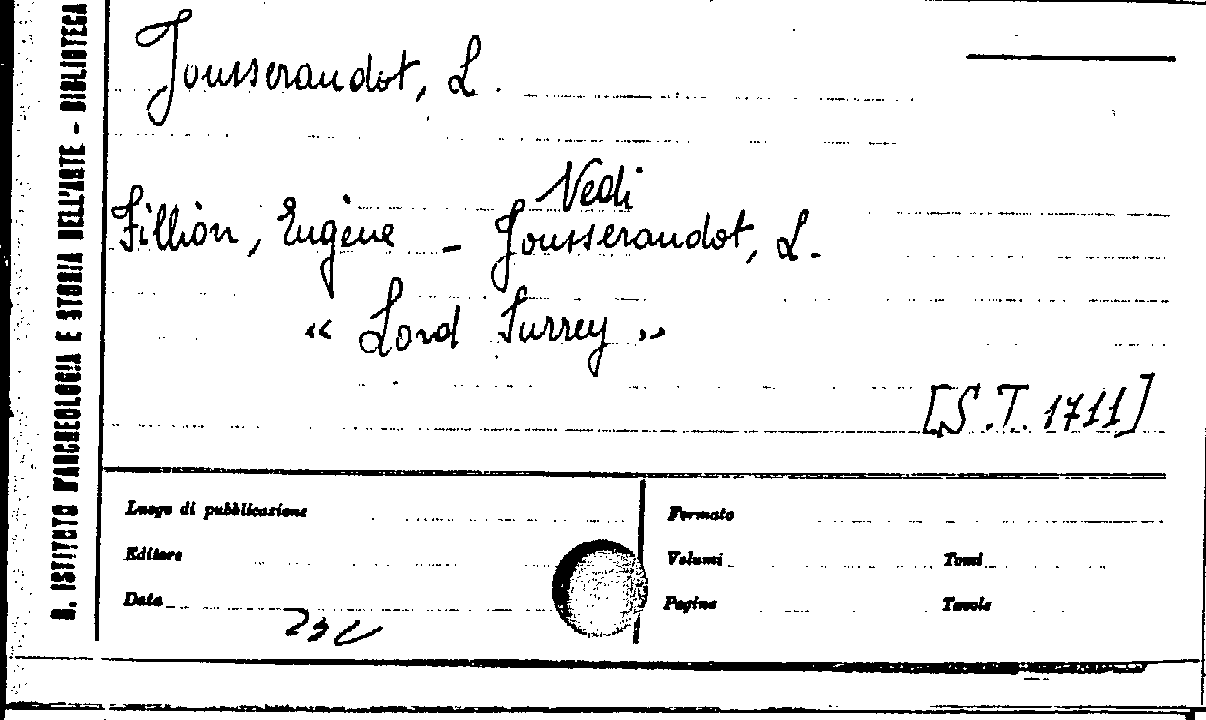 R. ISTITUTO D'ARCHEOLOGIA E STORIA DELL'ARTE - BIBLIOTECA
Jousseraudot, L.
Vedi
Fillion, Eugène - Jousseraudot, L.
« Lord Surrey »
[S.T. 1711]
Luogo di pubblicazione
Formato
Editore
Volumi
Tomi
Data
Pagine
Tavole